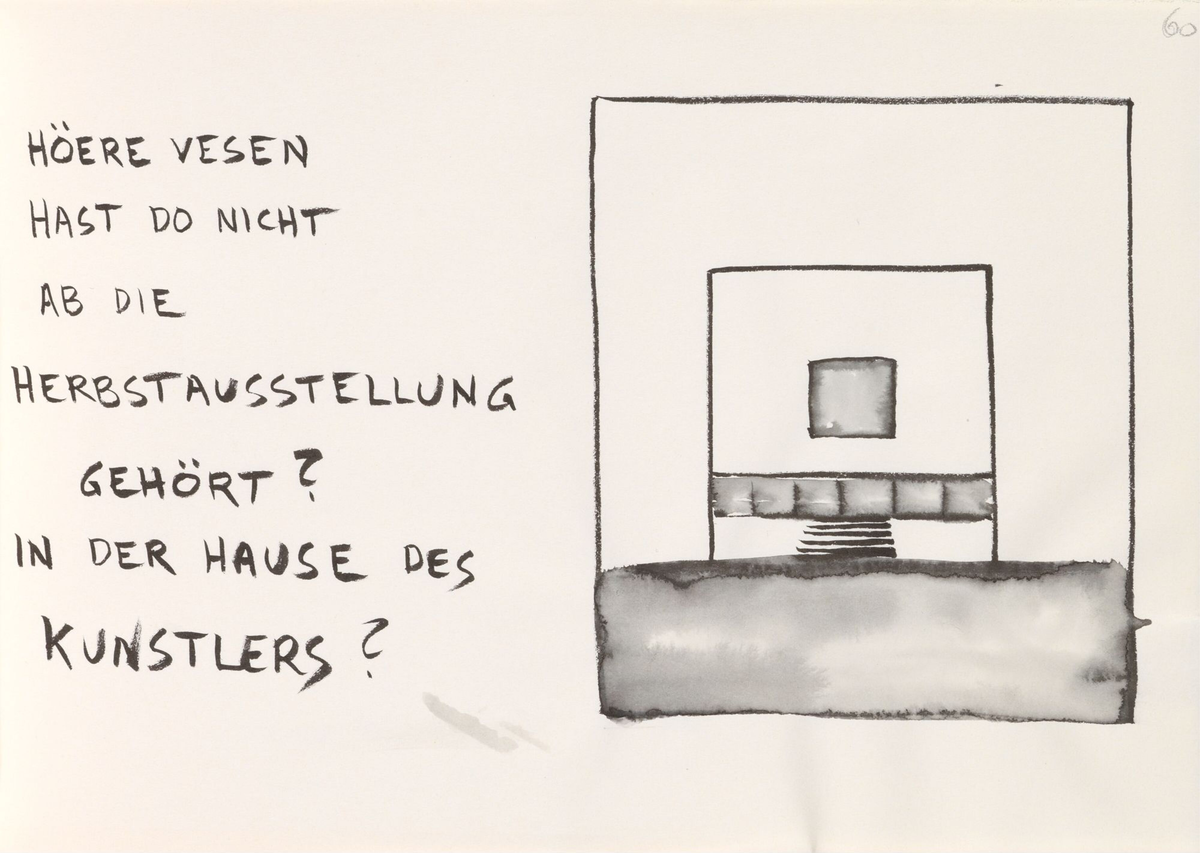 HÖERE VESEN
HAST DO NICHT
AB DIE
HERBSTAUSSTELLUNG
GEHÖRT?
IN DER HAUSE DES
KUNSTLERS?
60